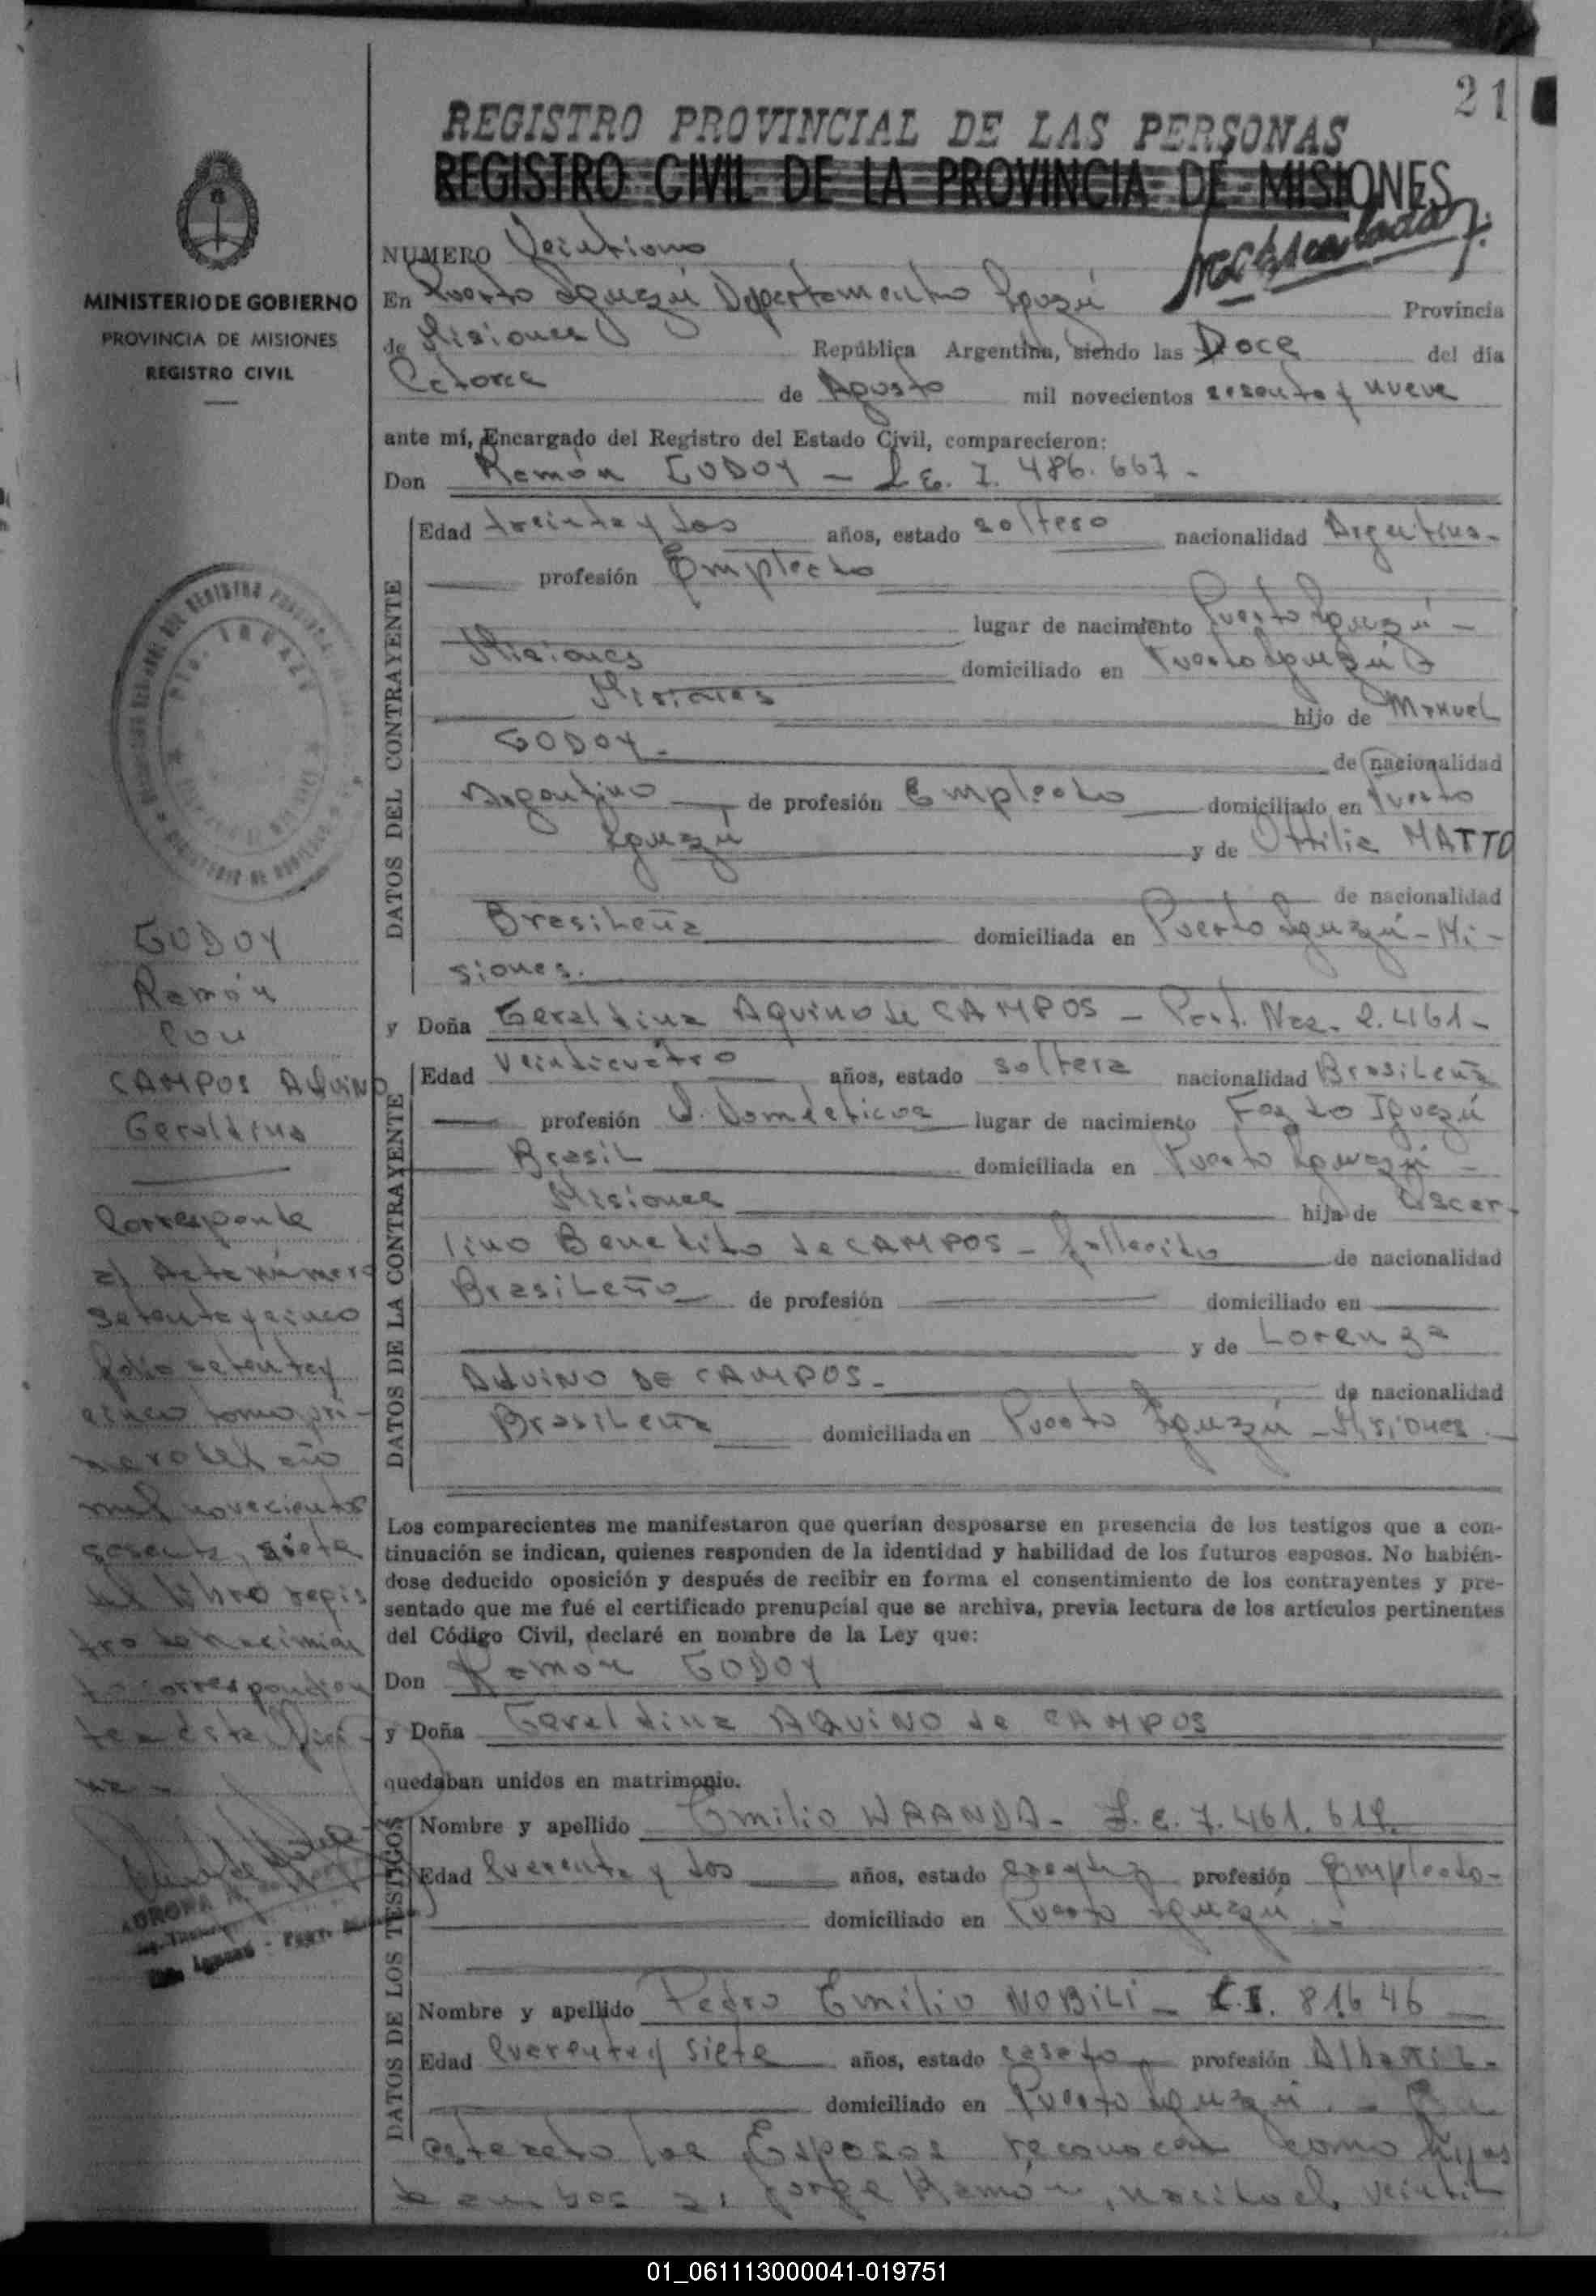 21
REGISTRO PROVINCIAL DE LAS PERSONAS
REGISTRO CIVIL DE LA PROVINCIA DE MISIONES
MINISTERIO DE GOBIERNO
PROVINCIA DE MISIONES
REGISTRO CIVIL
NUMERO Veintiuno
En Puerto Iguazú Departamento Iguazú Provincia
de Misiones República Argentina, siendo las Doce del día
Catorce de Agosto mil novecientos sesenta y nueve
ante mí, Encargado del Registro del Estado Civil, comparecieron:
Don Ramón GODOY - L.E. 7.486.667-
DATOS DEL CONTRAYENTE
Edad treinta y dos años, estado soltero nacionalidad Argentina-
profesión Empleado
lugar de nacimiento Puerto Iguazú -
Misiones domiciliado en Puerto Iguazú -
Misiones hijo de Manuel
GODOY- de nacionalidad
Argentino de profesión Empleado domiciliado en Puerto
Iguazú y de Ottilia MATTO
de nacionalidad
Brasileña domiciliada en Puerto Iguazú - Mi-
siones.
y Doña Geraldina Aquino de CAMPOS - Part. Nac. 2.461-
DATOS DE LA CONTRAYENTE
Edad Veinticuatro años, estado soltera nacionalidad Brasileña
profesión Q. Domésticos lugar de nacimiento Foz do Iguazú
Brasil domiciliada en Puerto Iguazú -
Misiones hija de
lino Benedito de CAMPOS - fallecido de nacionalidad
Brasileño de profesión domiciliado en
y de Lorenza
AQUINO DE CAMPOS- de nacionalidad
Brasileña domiciliada en Puerto Iguazú - Misiones
Los comparecientes me manifestaron que querían desposarse en presencia de los testigos que a con-
tinuación se indican, quienes responden de la identidad y habilidad de los futuros esposos. No habién-
dose deducido oposición y después de recibir en forma el consentimiento de los contrayentes y pre-
sentado que me fué el certificado prenupcial que se archiva, previa lectura de los artículos pertinentes
del Código Civil, declaré en nombre de la Ley que:
Don Ramón GODOY
y Doña Geraldina AQUINO de CAMPOS
quedaban unidos en matrimonio.
DATOS DE LOS TESTIGOS
Nombre y apellido Emilio WRANDA-
Edad Cuarenta y dos años, estado profesión Empleado-
domiciliado en Puerto Iguazú
Nombre y apellido Pedro Emilio NOBILI - C.I. 81646
Edad Cuarenta y siete años, estado casado profesión Albañil-
domiciliado en Puerto Iguazú. - En
este acto los Esposos reconocen como hijos
de ambos a: Jorge Ramón, nacido el
GODOY
Ramón
con
CAMPOS AQUINO
Geraldina
Corresponde
al Acta número
setenta y cinco
folio setenta y
cinco tomo pri-
mero del año
mil novecientos
sesenta, siete
del libro regis
tro de nacimien
to correspondien
te a ésta Ofici
na -
01_061113000041-019751